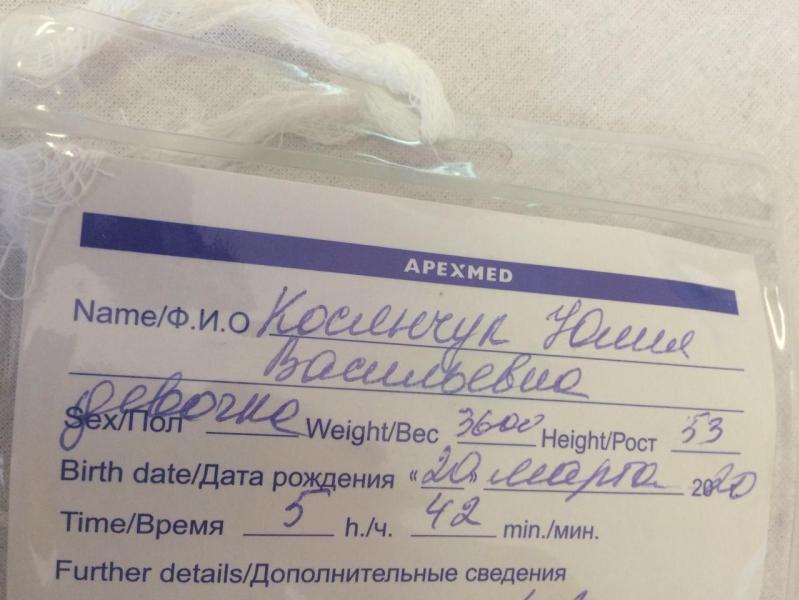 APEXMED
Name/Ф.И.О Косянчук Юлия
Васильевна
Sex/Пол девочка Weight/Вес 3600 Height/Рост 53
Birth date/Дата рождения «20» марта 2020
Time/Время 5 h./ч. 42 min./мин.
Further details/Дополнительные сведения